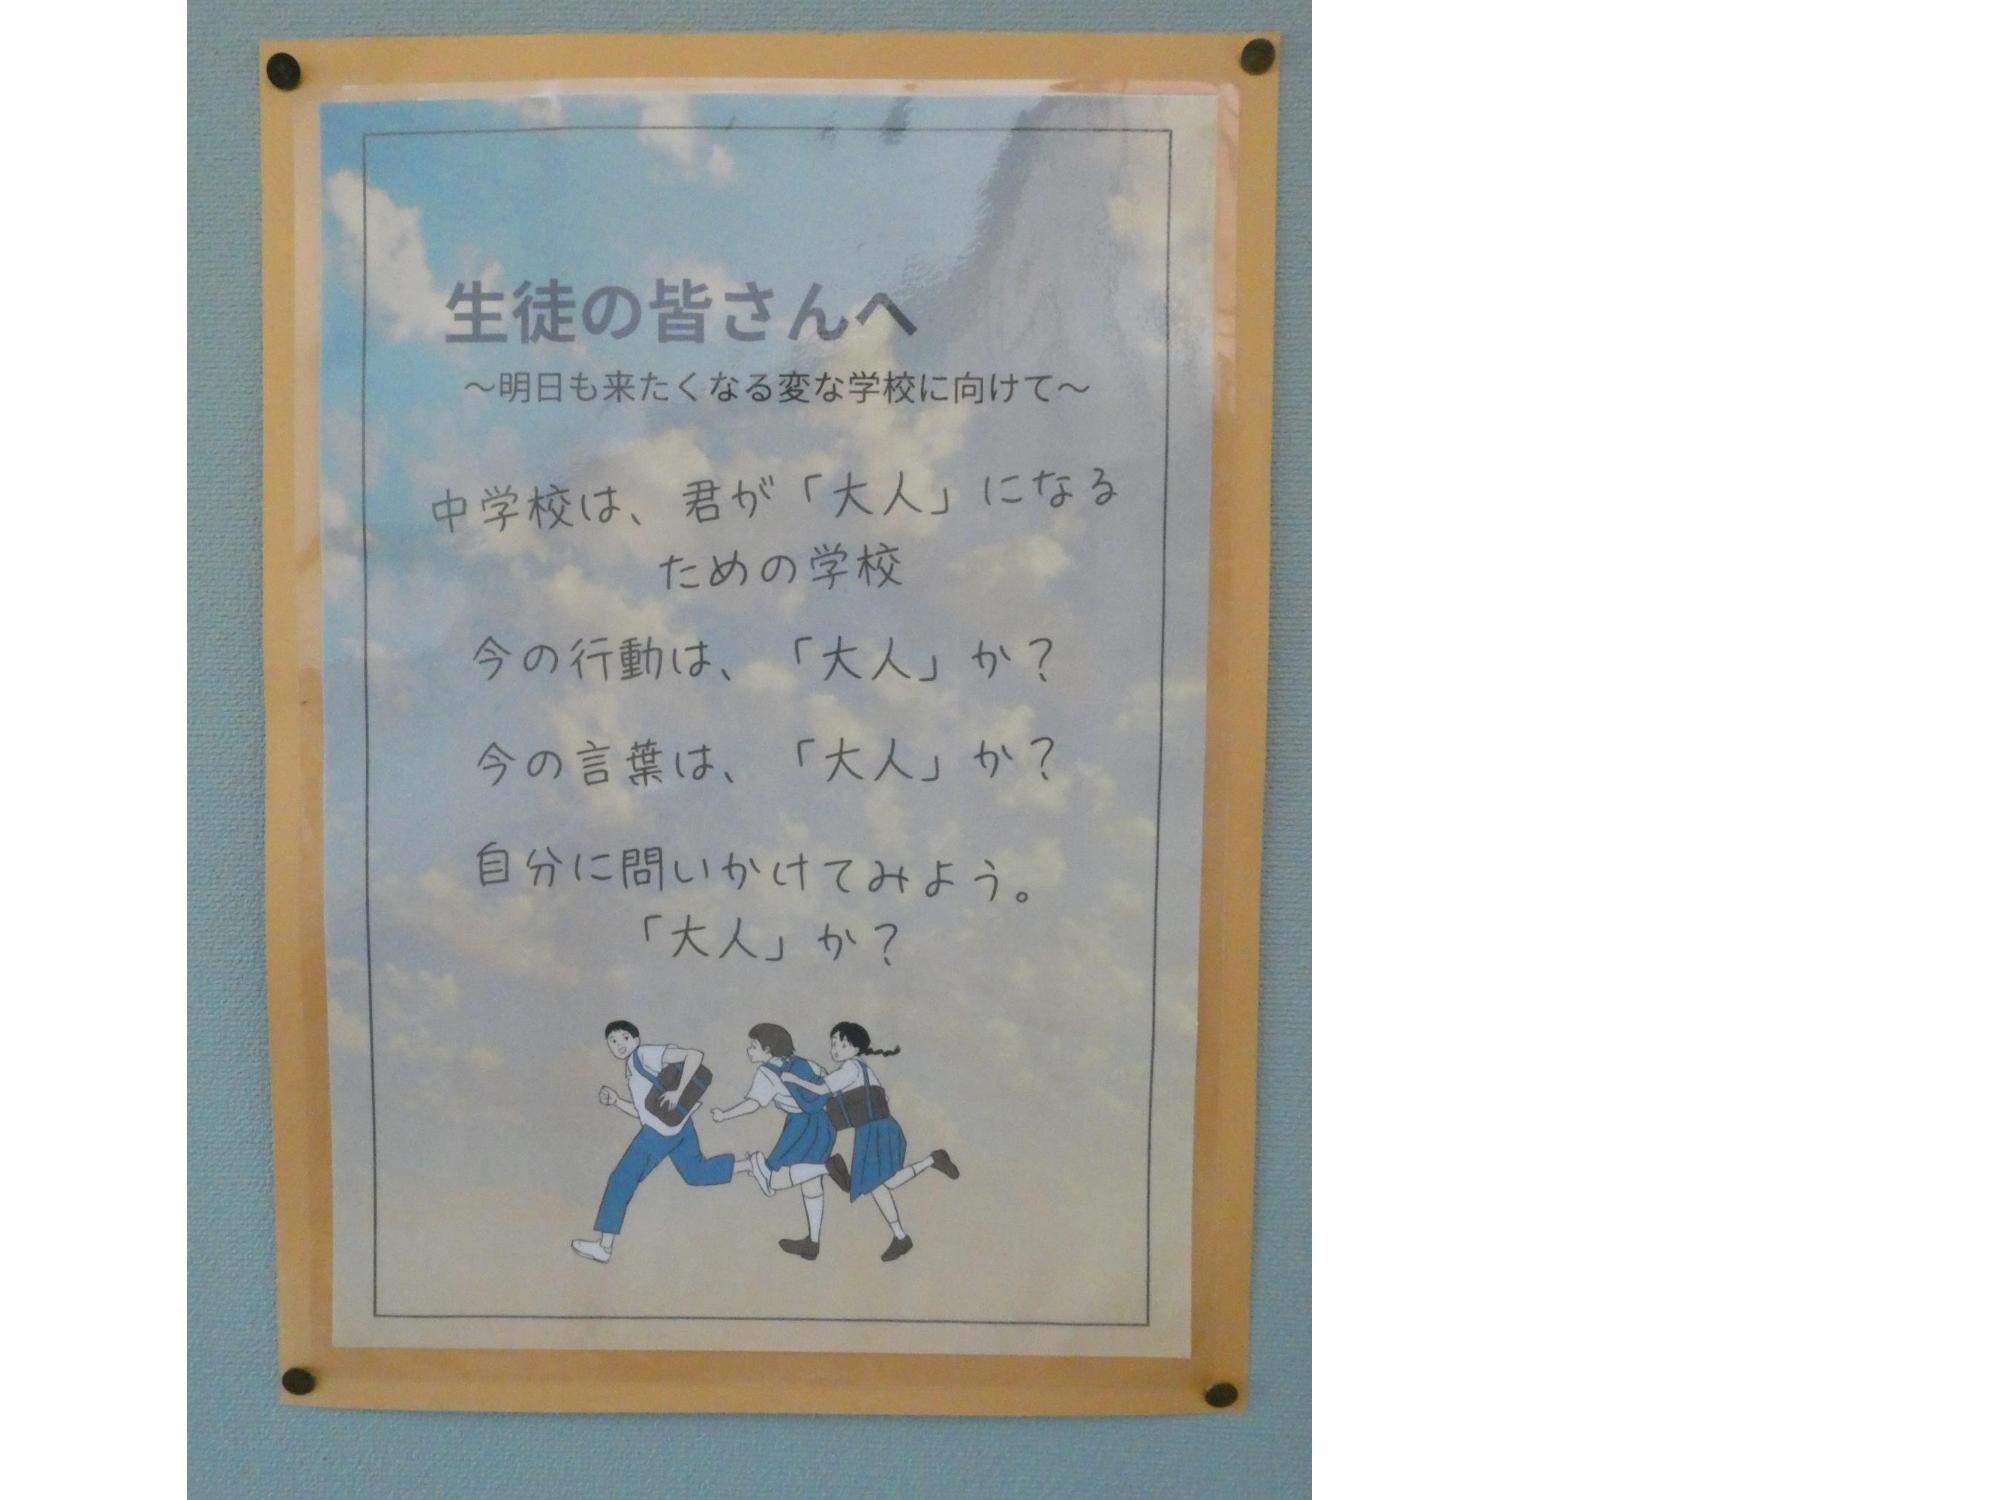 生徒の皆さんへ
～明日も来たくなる変な学校に向けて～
中学校は、君が「大人」になる
ための学校
今の行動は、「大人」か？
今の言葉は、「大人」か？
自分に問いかけてみよう。
「大人」か？